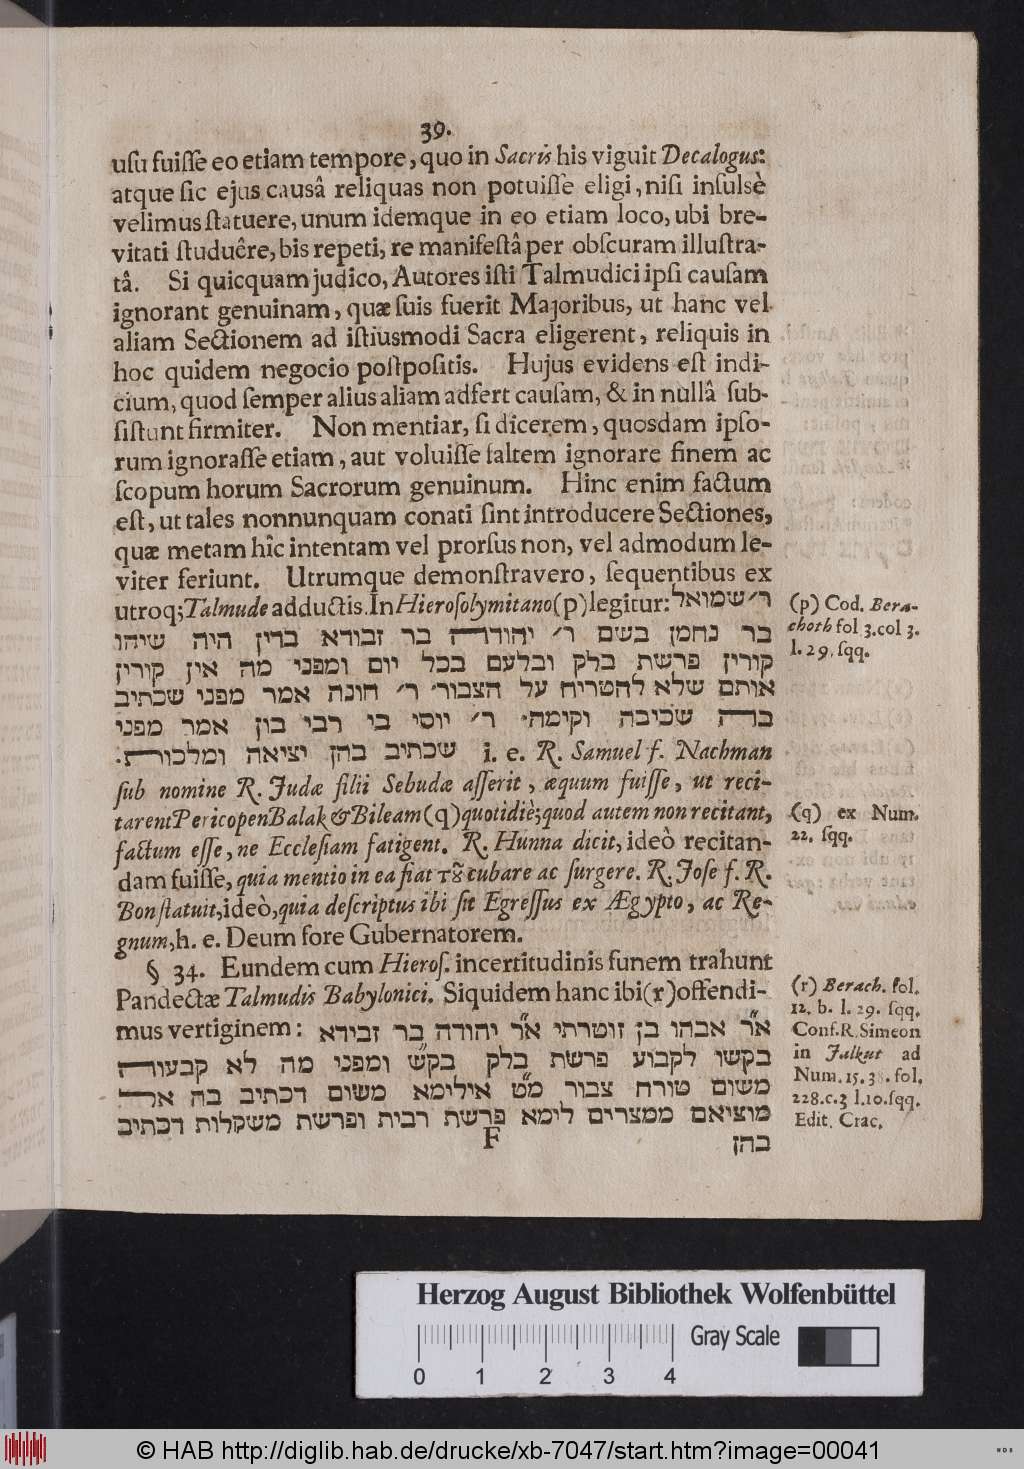 39.
usu fuisse eo etiam tempore, quo in Sacris his viguit Decalogus:
atque sic ejus causâ reliquas non potuisse eligi, nisi insulsè
velimus statuere, unum idemque in eo etiam loco, ubi bre-
vitati studuêre, bis repeti, re manifestâ per obscuram illustra-
tâ. Si quicquam judico, Autores isti Talmudici ipsi causam
ignorant genuinam, quæ suis fuerit Majoribus, ut hanc vel
aliam Sectionem ad istiusmodi Sacra eligerent, reliquis in
hoc quidem negocio postpositis. Hujus evidens est indi-
cium, quod semper alius aliam adfert causam, & in nullâ sub-
sistunt firmiter. Non mentiar, si dicerem, quosdam ipso-
rum ignorasse etiam, aut voluisse saltem ignorare finem ac
scopum horum Sacrorum genuinum. Hinc enim factum
est, ut tales nonnunquam conati sint introducere Sectiones,
quæ metam hîc intentam vel prorsus non, vel admodum le-
viter feriunt. Utrumque demonstravero, sequentibus ex
utroq; Talmude adductis. In Hierosolymitano (p) legitur: ר׳ שמואל
בר נחמן בשם ר׳ יהודה בר זבודא בדין היה שיהו
קורין פרשת בלק ובלעם בכל יום ומפני מה אין קורין
אותם שלא להטריח על הצבור׳ ר׳ חונת אמר מפני שכתיב
בה שכיבה וקימה׳ ר׳ יוסי בי רבי בון אמר מפני
שכתיב בהן יציאה ומלכות. i. e. R. Samuel f. Nachman
sub nomine R. Judæ filii Sebudæ asserit, æquum fuisse, ut reci-
tarent Pericopen Balak & Bileam (q) quotidiè; quod autem non recitant,
factum esse, ne Ecclesiam fatigent. R. Hunna dicit, ideò recitan-
dam fuisse, quia mentio in ea fiat τȣ͂ cubare ac surgere. R. Jose f. R.
Bon statuit, ideò, quia descriptus ibi sit Egressus ex Ægypto, ac Re-
gnum, h. e. Deum fore Gubernatorem.
§ 34. Eundem cum Hieros. incertitudinis funem trahunt
Pandectæ Talmudis Babylonici. Siquidem hanc ibi (r) offendi-
mus vertiginem: א״ר אבהו בן זוטרתי א״ר יהודה בר זבידא
בקשו לקבוע פרשת בלק בק״ש ומפני מה לא קבעוה
משום טורח צבור מ״ט אילימא משום דכתיב בה אל
מוציאם ממצרים לימא פרשת רבית ופרשת משקלות דכתיב
F בהן
(p) Cod. Bera-
choth fol 3. col 3.
l. 29. sqq.
(q) ex Num.
22. sqq.
(r) Berach. fol.
12. b. l. 29. sqq.
Conf. R. Simeon
in Jalkut ad
Num. 15. fol.
228. c. 3 l. 10. sqq.
Edit. Crac.
Herzog August Bibliothek Wolfenbüttel
Gray Scale
0 1 2 3 4
© HAB http://diglib.hab.de/drucke/xb-7047/start.htm?image=00041